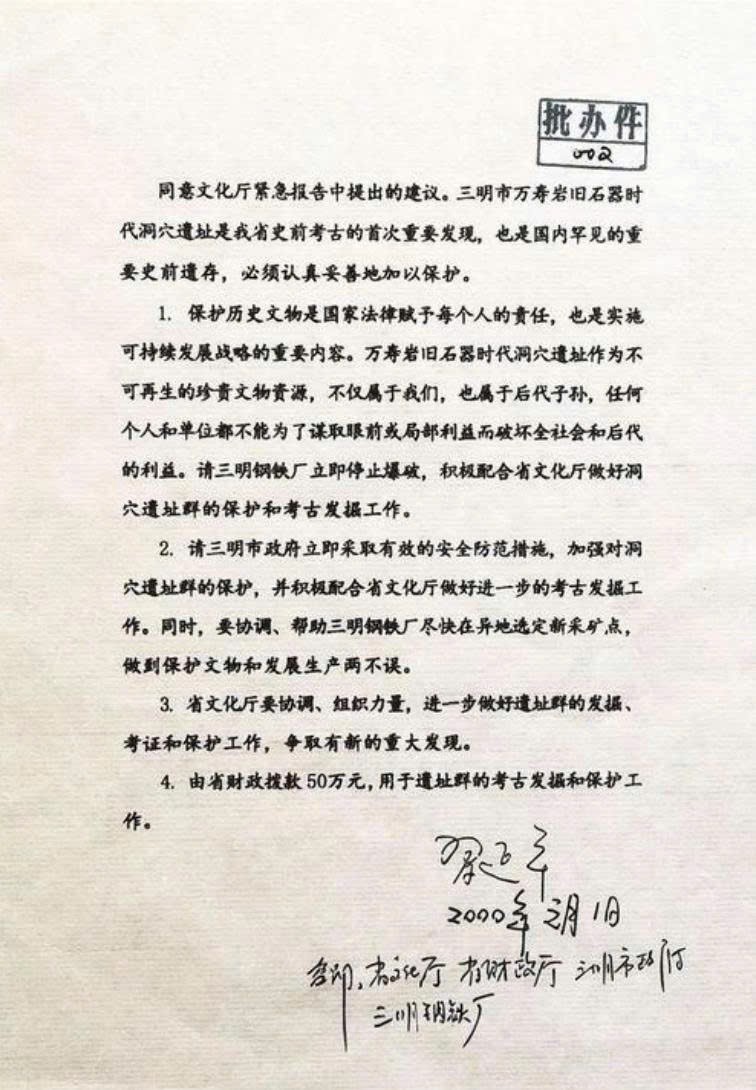 批办件
002
同意文化厅紧急报告中提出的建议。三明市万寿岩旧石器时
代洞穴遗址是我省史前考古的首次重要发现，也是国内罕见的重
要史前遗存，必须认真妥善地加以保护。
1. 保护历史文物是国家法律赋予每个人的责任，也是实施
可持续发展战略的重要内容。万寿岩旧石器时代洞穴遗址作为不
可再生的珍贵文物资源，不仅属于我们，也属于后代子孙，任何
个人和单位都不能为了谋取眼前或局部利益而破坏全社会和后代
的利益。请三明钢铁厂立即停止爆破，积极配合省文化厅做好洞
穴遗址群的保护和考古发掘工作。
2. 请三明市政府立即采取有效的安全防范措施，加强对洞
穴遗址群的保护，并积极配合省文化厅做好进一步的考古发掘工
作。同时，要协调、帮助三明钢铁厂尽快在异地选定新采矿点，
做到保护文物和发展生产两不误。
3. 省文化厅要协调、组织力量，进一步做好遗址群的发掘、
考证和保护工作，争取有新的重大发现。
4. 由省财政拨款50万元，用于遗址群的考古发掘和保护工
作。
习近平
2000年元月1日
复印：省文化厅 省财政厅 三明市政府
三明钢铁厂